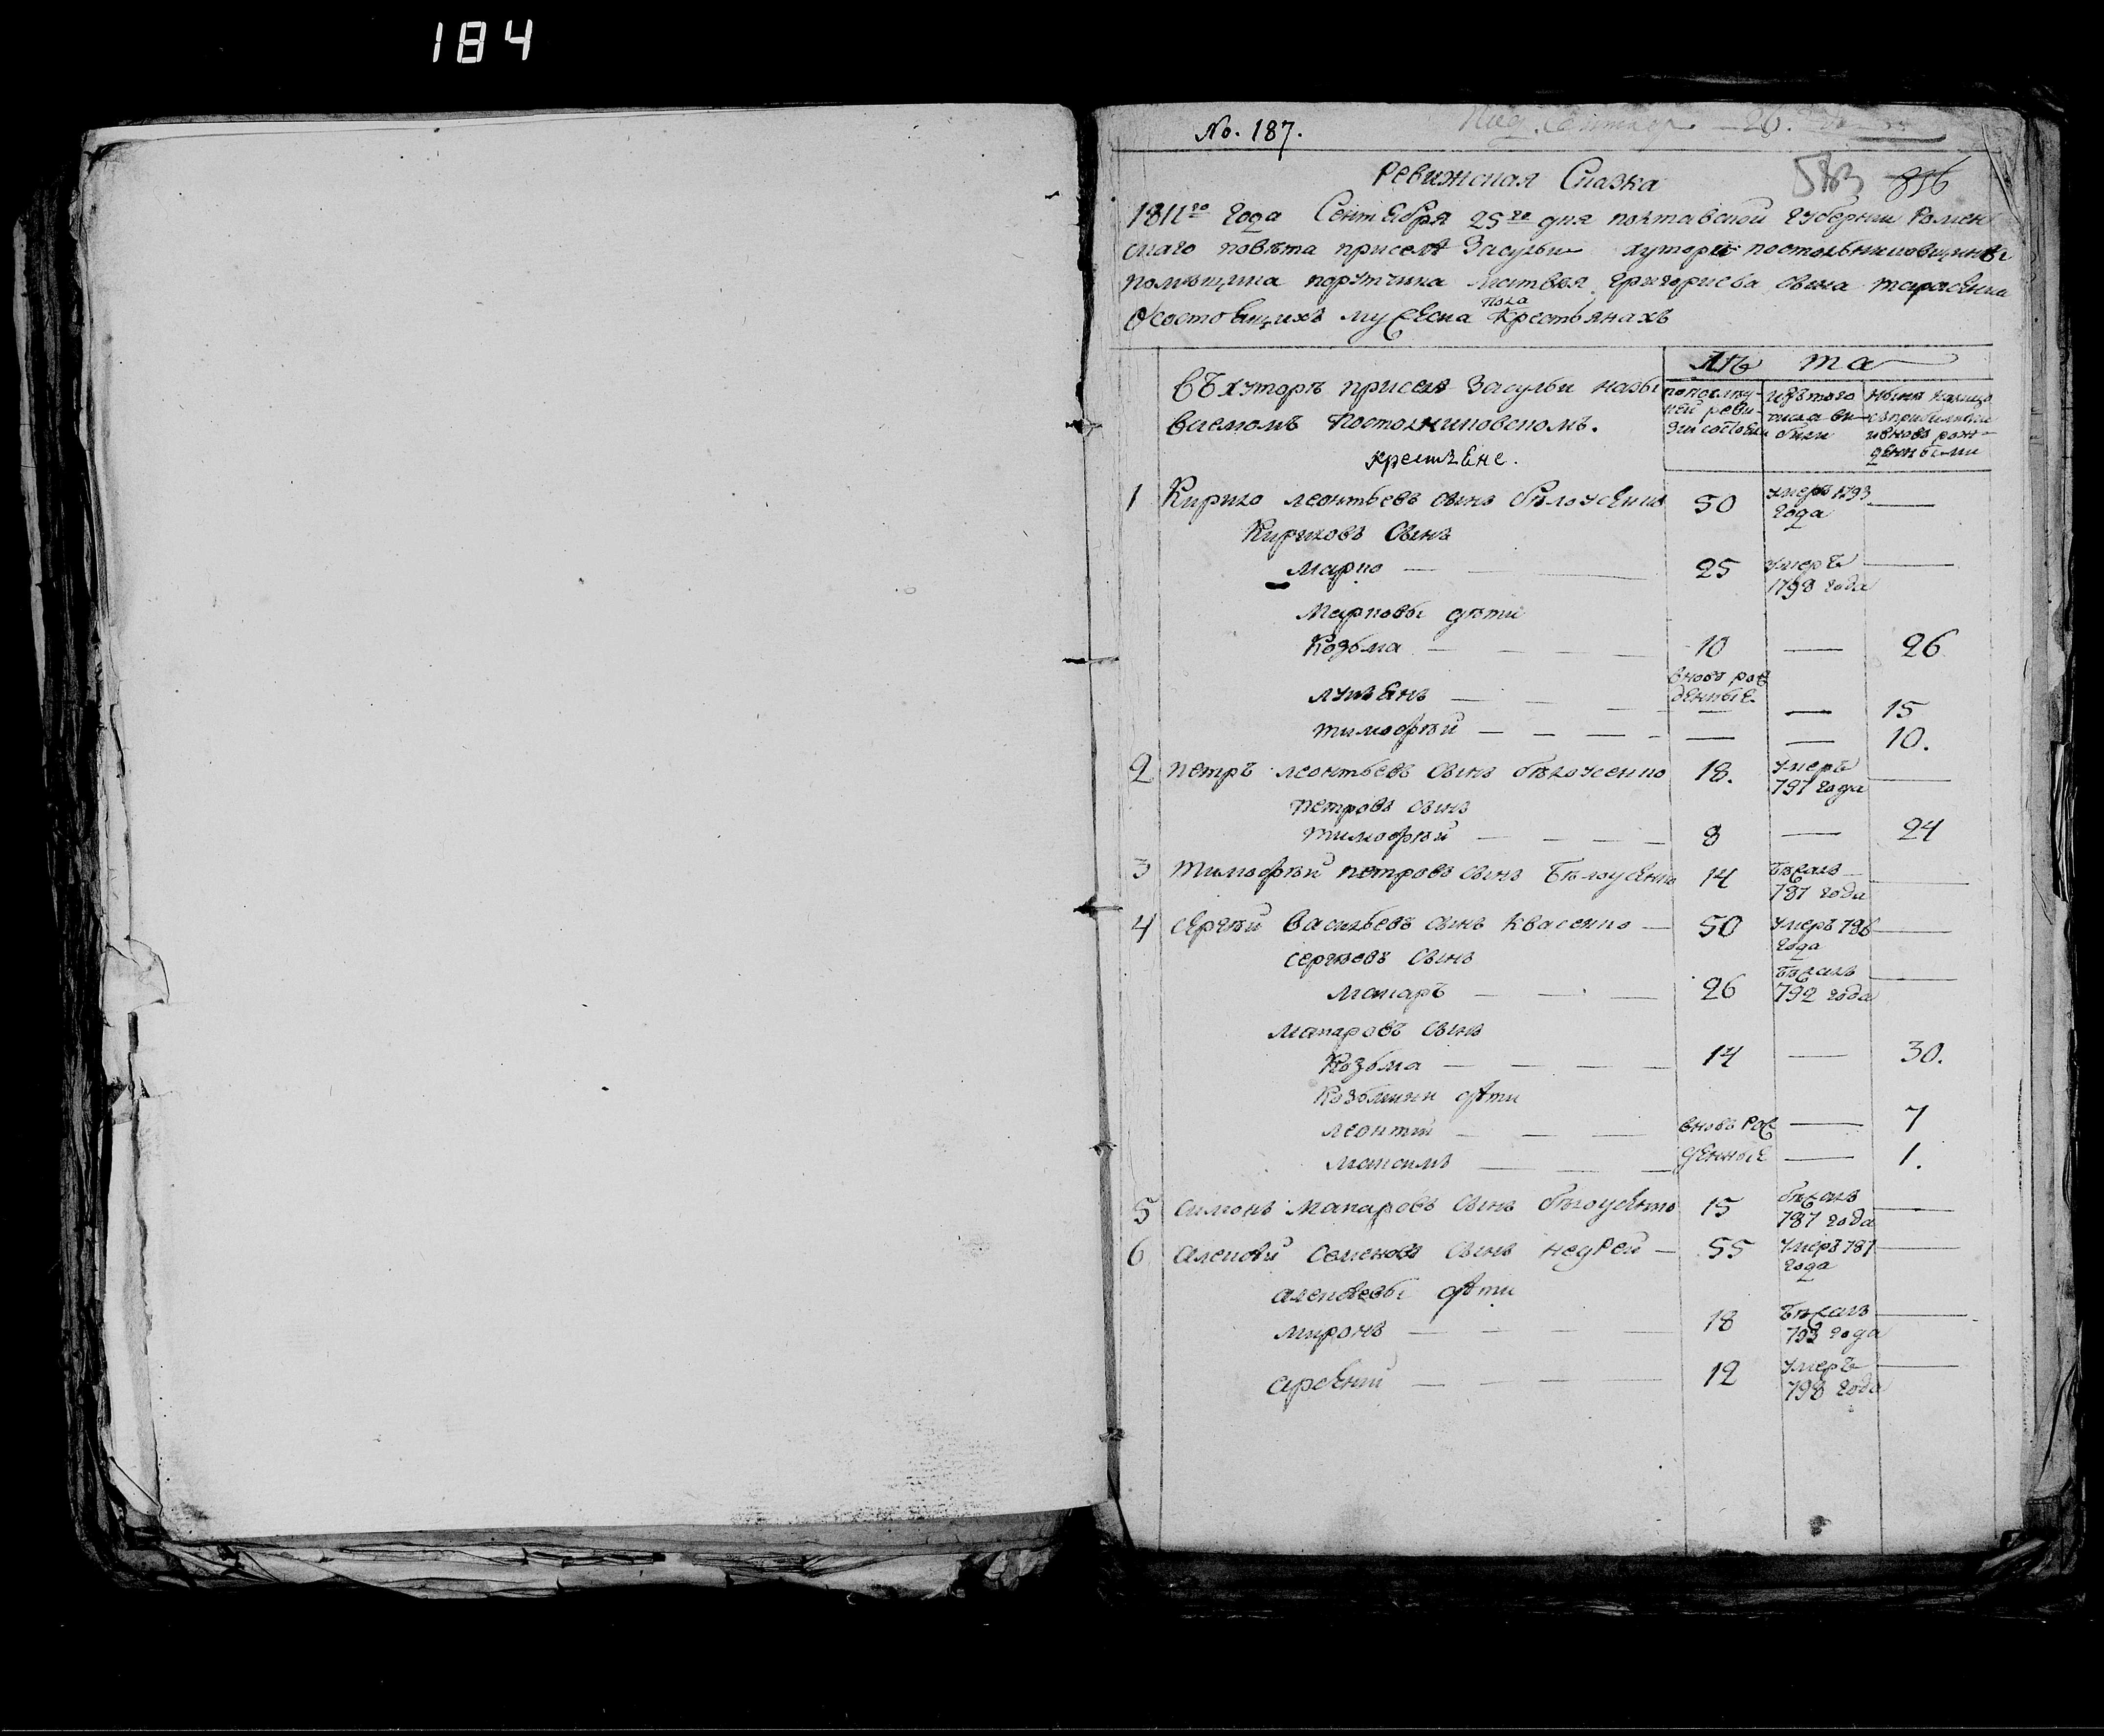 184
No. 187.
583 816
Ревижская Сказка
1811го года Сентября 25го дня полтавской губернии Ромен
скаго повѣта приселѣ Засульи хутора постольниковщины
помѣщика порутчика матвѣя григориева сына тарасенка
О состоящихъ мужеска пола крестьянахъ
лѣ та
въ хуторѣ приселѣ Засульи назы
ваемомъ Постолниковскомъ.
крестяне.
по послѣд-
ней реви-
зіи состояли
изъ того
числа вы-
были
нынѣ налицо
съ прибылыми
и вновь рож-
денными
1 Кирило леонтьевъ сынъ бѣлоусенко 50 умеръ 1793 года —
Кириловъ сынъ
Марко — 25 умеръ 1798 года —
Марковы дѣти
Козьма — 10 — 26
лукьянъ — вновь рож
денные — 15
тимофѣй — — — 10.
2 петръ леонтьевъ сынъ бѣлоусенко 18. умеръ 797 года —
петровъ сынъ
тимофѣй — 8 — 24
3 тимофѣй петровъ сынъ бѣлоусенко 14 бѣжалъ 787 года —
4 сергѣй васильевъ сынъ квасенко — 50 умеръ 786 года —
сергѣевъ сынъ
макаръ — 26 бѣжалъ 792 года —
макаровъ сынъ
Козьма — 14 — 30.
Козьмины дѣти
леонтий — вновь рож — 7
максимъ — денные — 1.
5 симонъ макаровъ сынъ бѣлоусенко 15 бѣжалъ 787 года —
6 алексѣй семеновъ сынъ — 55 умеръ 787 года —
алексѣевы дѣти
миронъ — 18 бѣжалъ 793 года —
арсений — 12 умеръ 798 года —